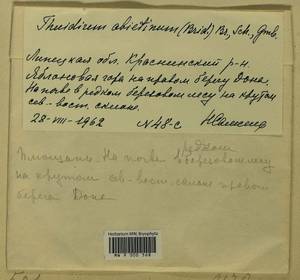 Thuidium abietinum (Brid.) Br., Sch., Gmb.
Липецкая обл. Краснинский р-н.
Яблоновая гора на правом берегу Дона.
На почве в редком березовом лесу на крутом
сев-вост. склоне.
28-VIII-1962 N48-С
редком
На почве в березовом лесу
на крутом св-вост. склоне правого
берега Дона
Herbarium MW, Bryophyta